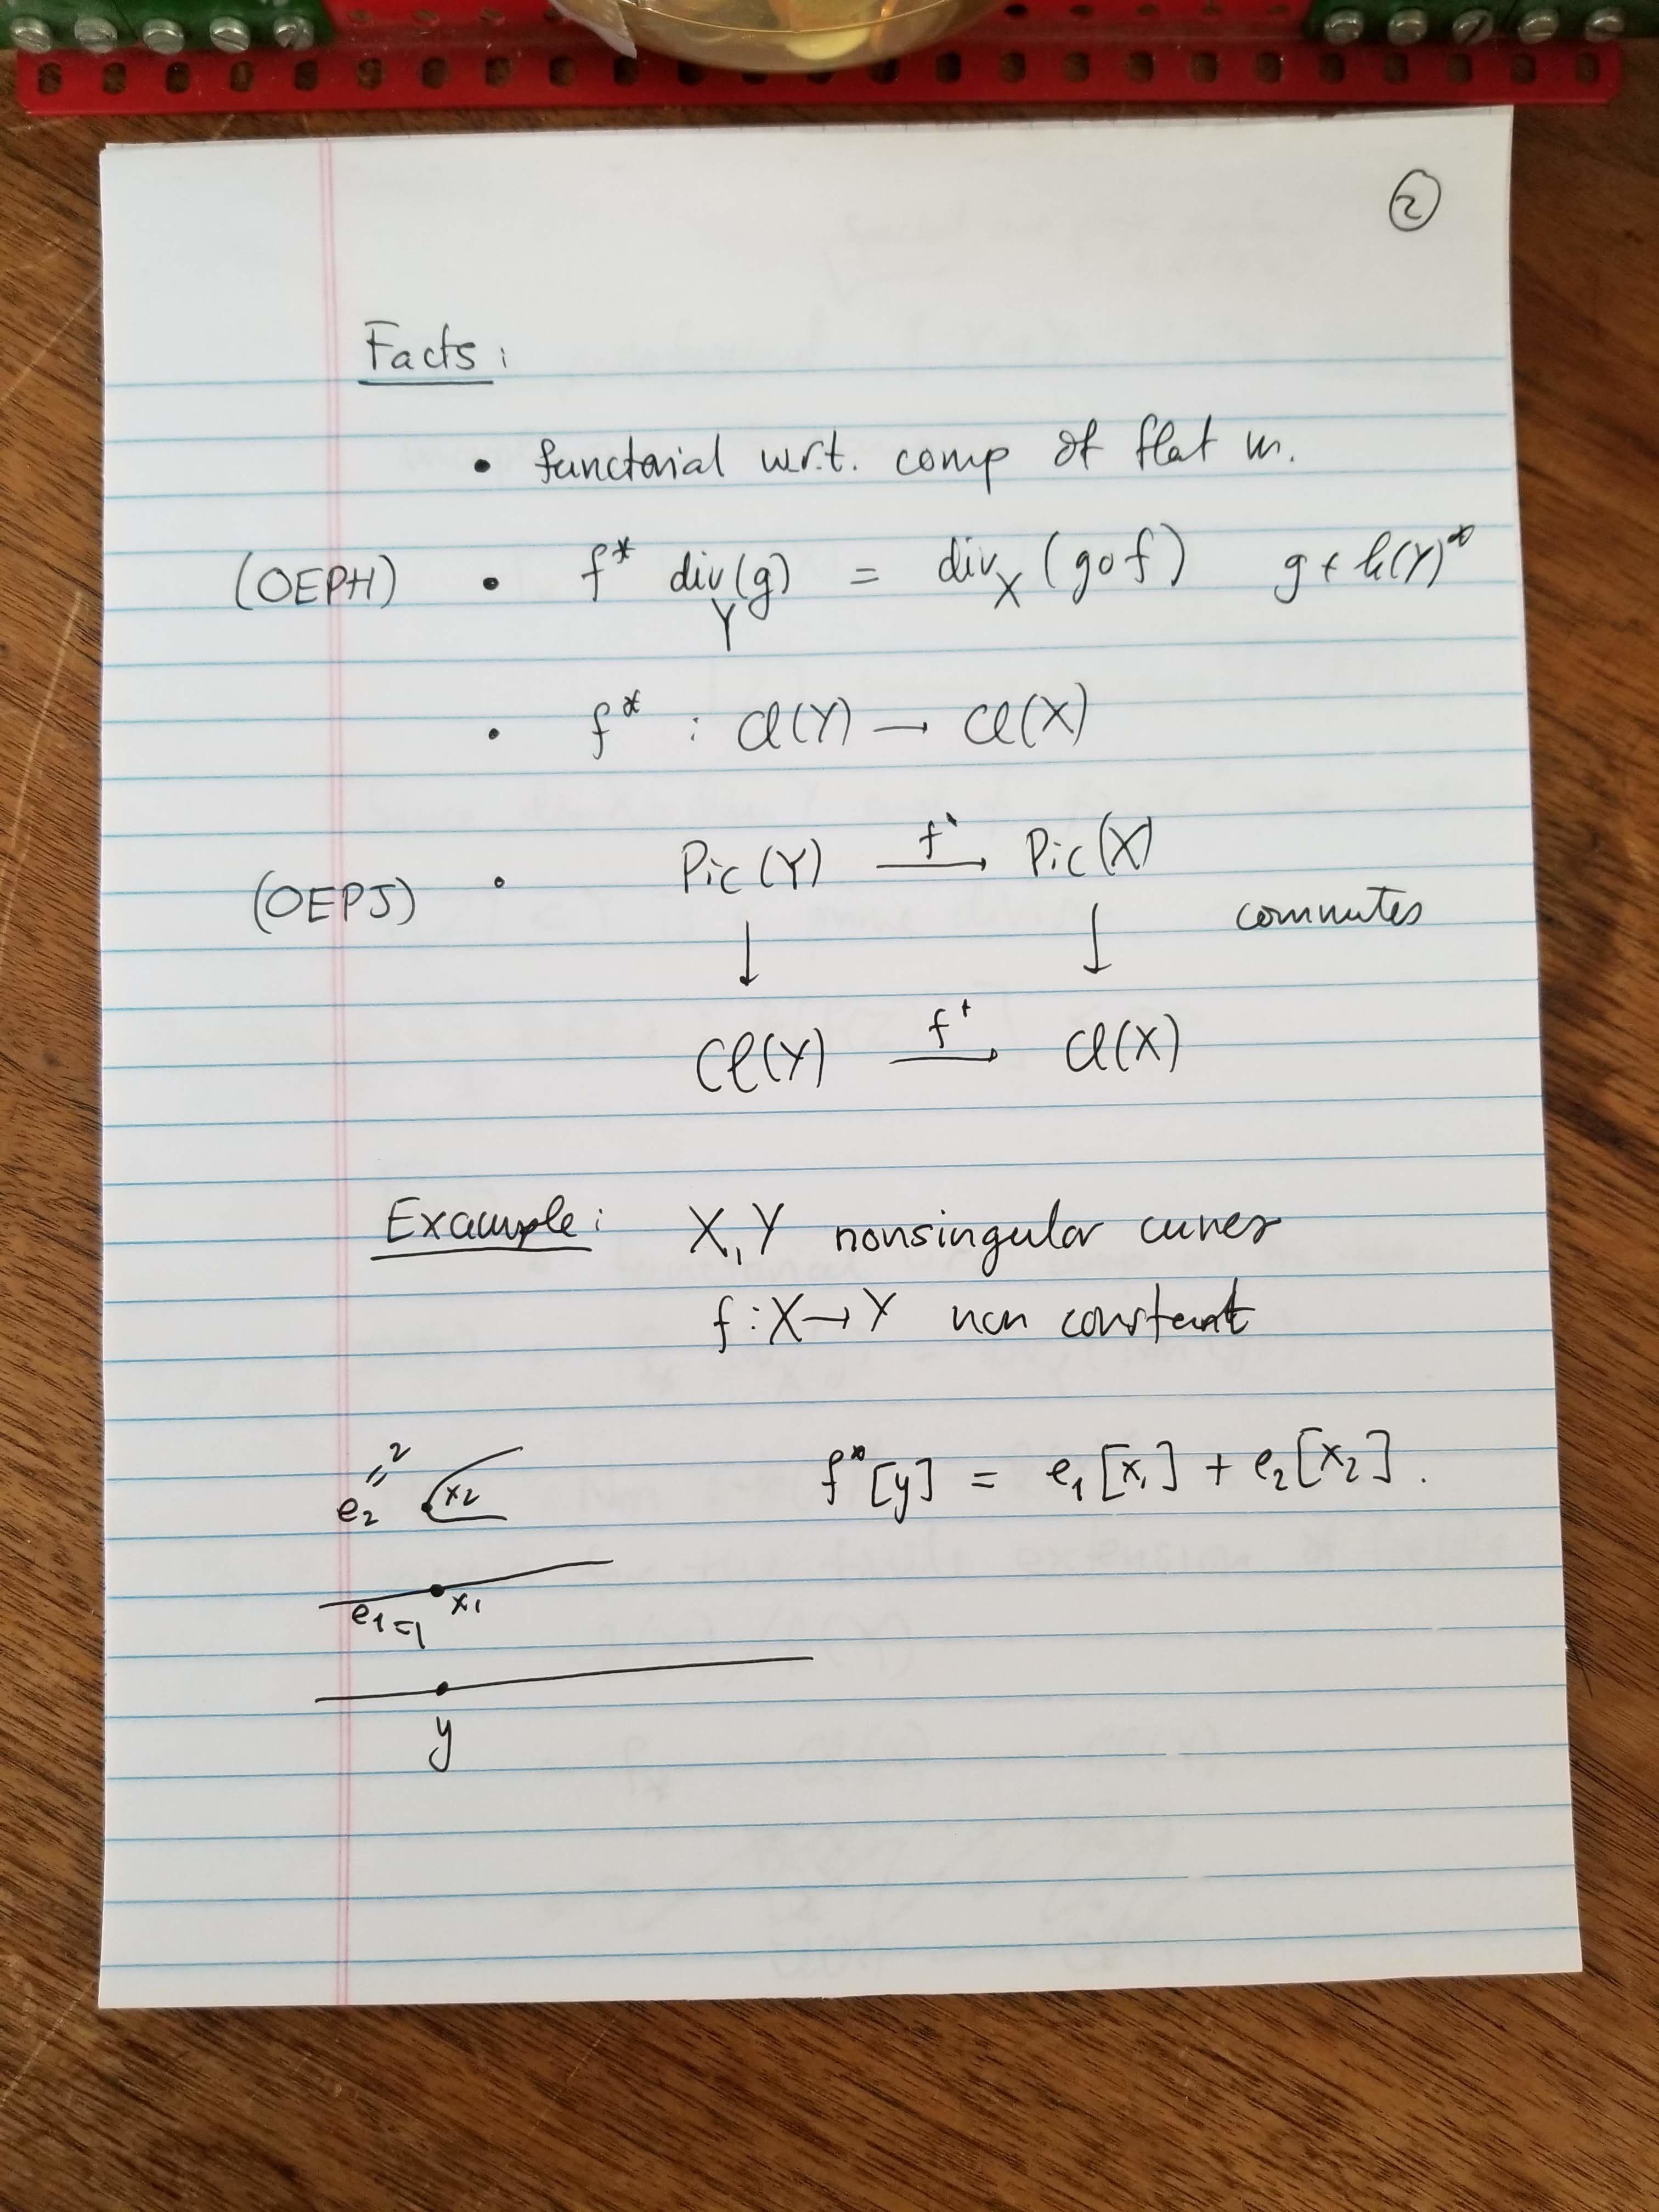 ②
Facts:
• functorial w.r.t. comp of flat m.
(OEPH) • f* div_Y(g) = div_X(g∘f) g ∈ k(Y)*
• f* : Cl(Y) → Cl(X)
(OEPJ) • Pic(Y) —f*→ Pic(X)
↓ ↓ commutes
Cl(Y) —f*→ Cl(X)
Example: X, Y nonsingular curves
f : X → Y non constant
e₂ = 2 x₂ f*[y] = e₁[x₁] + e₂[x₂].
e₁ = 1 x₁
y